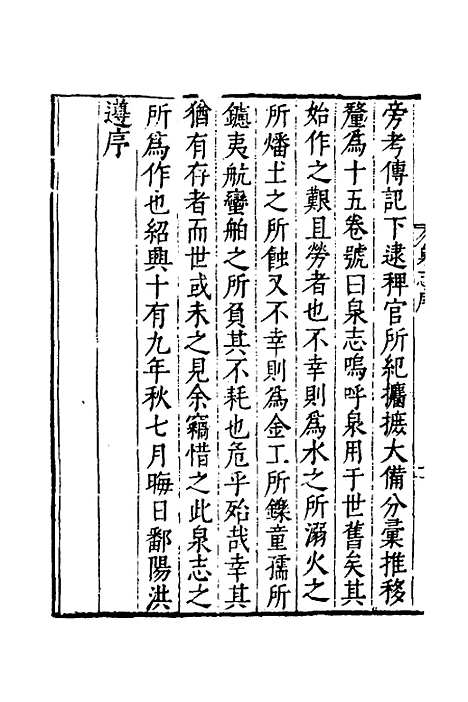 旁考傳記下逮稗官所紀攟摭大備分彙推移
釐為十五卷號曰泉志嗚呼泉用于世舊矣其
始作之艱且勞者也不幸則為水之所溺火之
所燔土之所蝕又不幸則為金工所鑠童孺所
鑢夷航蠻舶之所負其不耗也危乎殆哉幸其
猶有存者而世或未之見余竊惜之此泉志之
所為作也紹興十有九年秋七月晦日鄱陽洪
遵序
泉志序